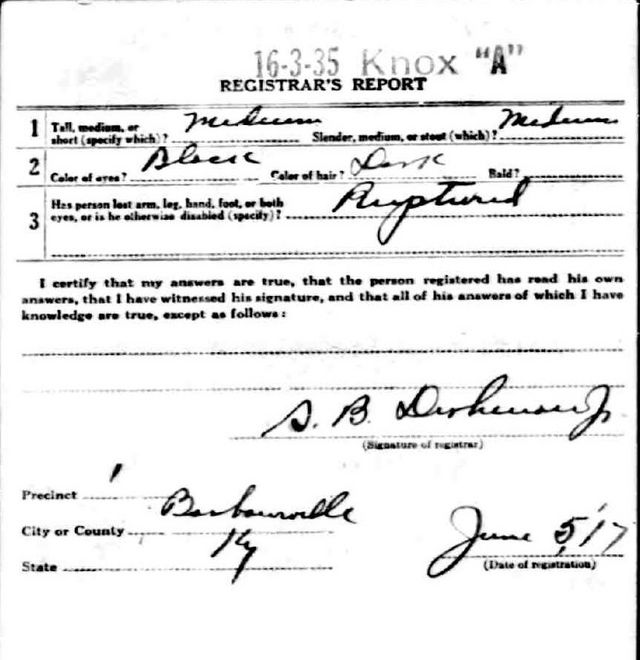 16-3-35 Knox "A"
REGISTRAR'S REPORT
1 Tall, medium, or short (specify which)? Medium Slender, medium, or stout (which)? Medium
2 Color of eyes? Black Color of hair? Dark Bald?
3 Has person lost arm, leg, hand, foot, or both eyes, or is he otherwise disabled (specify)? Ruptured
I certify that my answers are true, that the person registered has read his own
answers, that I have witnessed his signature, and that all of his answers of which I have
knowledge are true, except as follows:
S. B. Jr
(Signature of registrar)
Precinct 1
City or County Barbourville
State Ky
June 5, 17
(Date of registration)